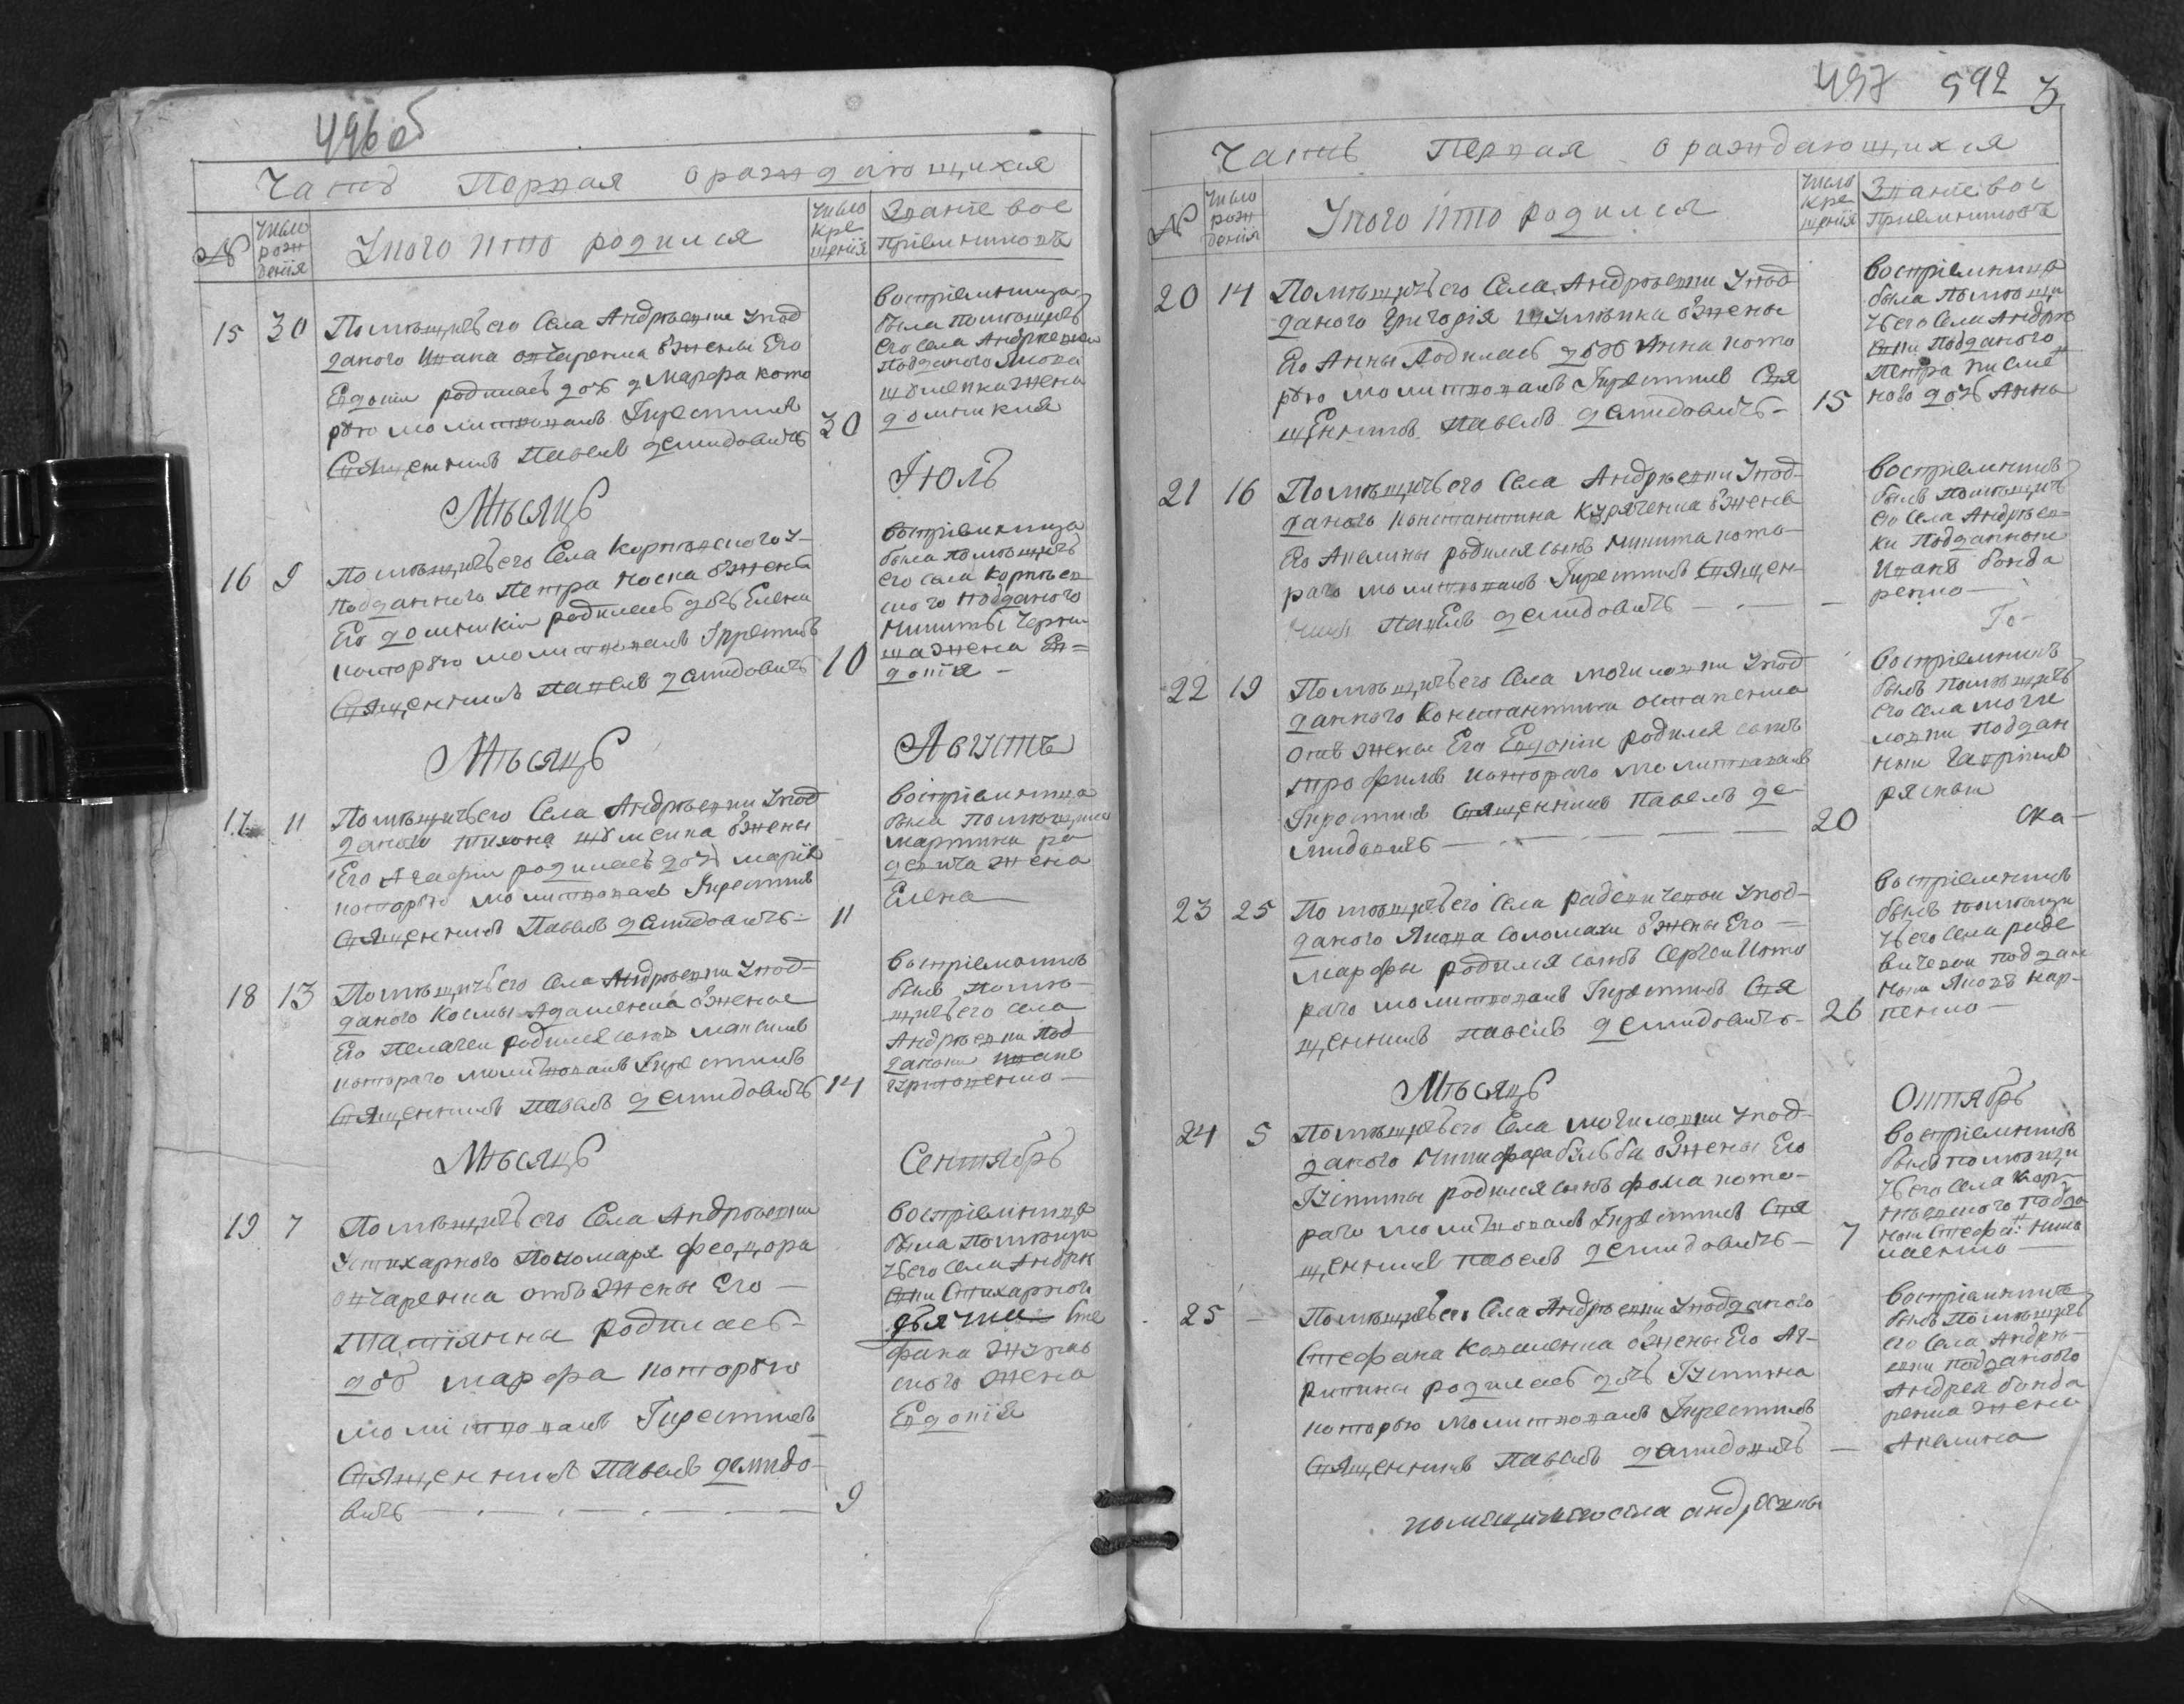 496 об
Часть Первая о раждающихся
№
Число рож денія
У кого кто родился
Число кре щенія
Званіе вос пріемниковъ
15 30
Помѣщичьего Села Андрѣевки У под
даного Ивана овчаренка ѿ жены Его
Евдокіи родилась дочь Марфа кото
рую молитвовалъ И крестилъ
Священникъ Павелъ Демидовичъ
30
Воспріемница
была помѣщичь
его села Андрѣевки
Подданого Якова
жена
домникия
Мѣсяцъ Іюль
16 9
Помѣщичьего Села Корнѣевского У
подданного Петра Носка ѿ жены
Его домникіи родилась дочь Елена
которую молитвовалъ И крестилъ
Священникъ Павелъ Демидовичъ
10
Воспріемница
была помѣщичь
его села Корнѣев
ского подданого
Никиты
жена Ев=
докія
Мѣсяцъ Августъ
17 11
Помѣщичьего Села Андрѣевки У под
даного Тихона ѿ жены
Его Агафіи родилась дочь марія
которую молитвовалъ И крестилъ
Священникъ Павелъ Демидовичъ
11
Воспріемница
была Помѣщика
мартина ра
девича жена
Елена
18 13
Помѣщичьего Села Андрѣевки У под-
даного Космы Адаменка ѿ жены
Его Пелагеи родился сынъ максимъ
котораго молитвовалъ И крестилъ
Священникъ Павелъ Демидовичъ
14
Воспріемникъ
былъ помѣ-
щичьего села
Андрѣевки Под
даный Иванъ
Мѣсяцъ Сентябрь
19 7
Помѣщичьего Села Андрѣевки
У стихарного Пономаря Феодора
овчаренка отъ жены Его
Татіянны родилась
дочь марфа которую
молитвовалъ И крестилъ
Священникъ Павелъ демидо-
вичъ
9
Воспріемница
была помѣщи
чьего села Андрѣ
евки Стихарного
дьячка Сте
фана
ского жена
Евдокія
497 592 3
Часть Первая о раждающихся
№
Число рож денія
У кого кто родился
Число кре щенія
Званіе вос пріемниковъ
20 14
Помѣщичьего Села Андрѣевки У под
даного Григорія ѿ жены
Его Анны Родилась дочь Анна кото
рую молитвовалъ И крестилъ Свя
щенникъ Павелъ Демидовичъ
15
Воспріемница
была помѣщи
чьего села Андрѣ
евки Подданого
Петра
дочь Анна
21 16
Помѣщичьего Села Андрѣевки У под-
даного Константина Куряченка ѿ жены
Его Акелины родился сынъ Никита кото-
раго молитвовалъ И крестилъ Священ-
никъ Павелъ Демидовичъ
Воспріемникъ
былъ помѣщичь
его села Андрѣев-
ки Подданный
Иванъ бонда
ренко
Го-
22 19
Помѣщичьего Села могиловки У под
данного Константина остапенка
отъ жены Его Евдокіи родился сынъ
трофимъ котораго молитвовалъ
И крестилъ Священникъ Павелъ де-
мидовичъ
20
Воспріемникъ
былъ помѣщичь
его села моги
ловки поддан
ный Гавріилъ
Ска-
23 25
Помѣщичьего Села радевичевой У под-
даного Якова Соломахи ѿ жены Его
марфы родился сынъ Сергей кото
раго молитвовалъ И крестилъ Свя
щенникъ Павелъ Демидовичъ
26
Воспріемникъ
былъ помѣщи
чьего села раде
вичевой поддан
ный Яковъ кар-
пенко
Мѣсяцъ Октябрь
24 5
Помѣщичьего Села могиловки У под-
даного Никифора бульбы ѿ жены Его
Устины родился сынъ фома кото-
раго молитвовалъ И крестилъ Свя
щенникъ Павелъ Демидовичъ
7
Воспріемникъ
былъ помѣщи
чьего села Кор-
нѣевского подда
ный Стефанъ
25 —
Помѣщичьего Села Андрѣевки У подданого
Стефана Коваленка ѿ жены Его Аг-
рипины родилась дочь Устина
которую молитвовалъ И крестилъ
Священникъ Павелъ Демидовичъ
Воспріемница
была Помѣщичь
его Села Андрѣ-
евки подданого
Андрея бонда
ренка жена
Акелина
помещичьего села андреевки